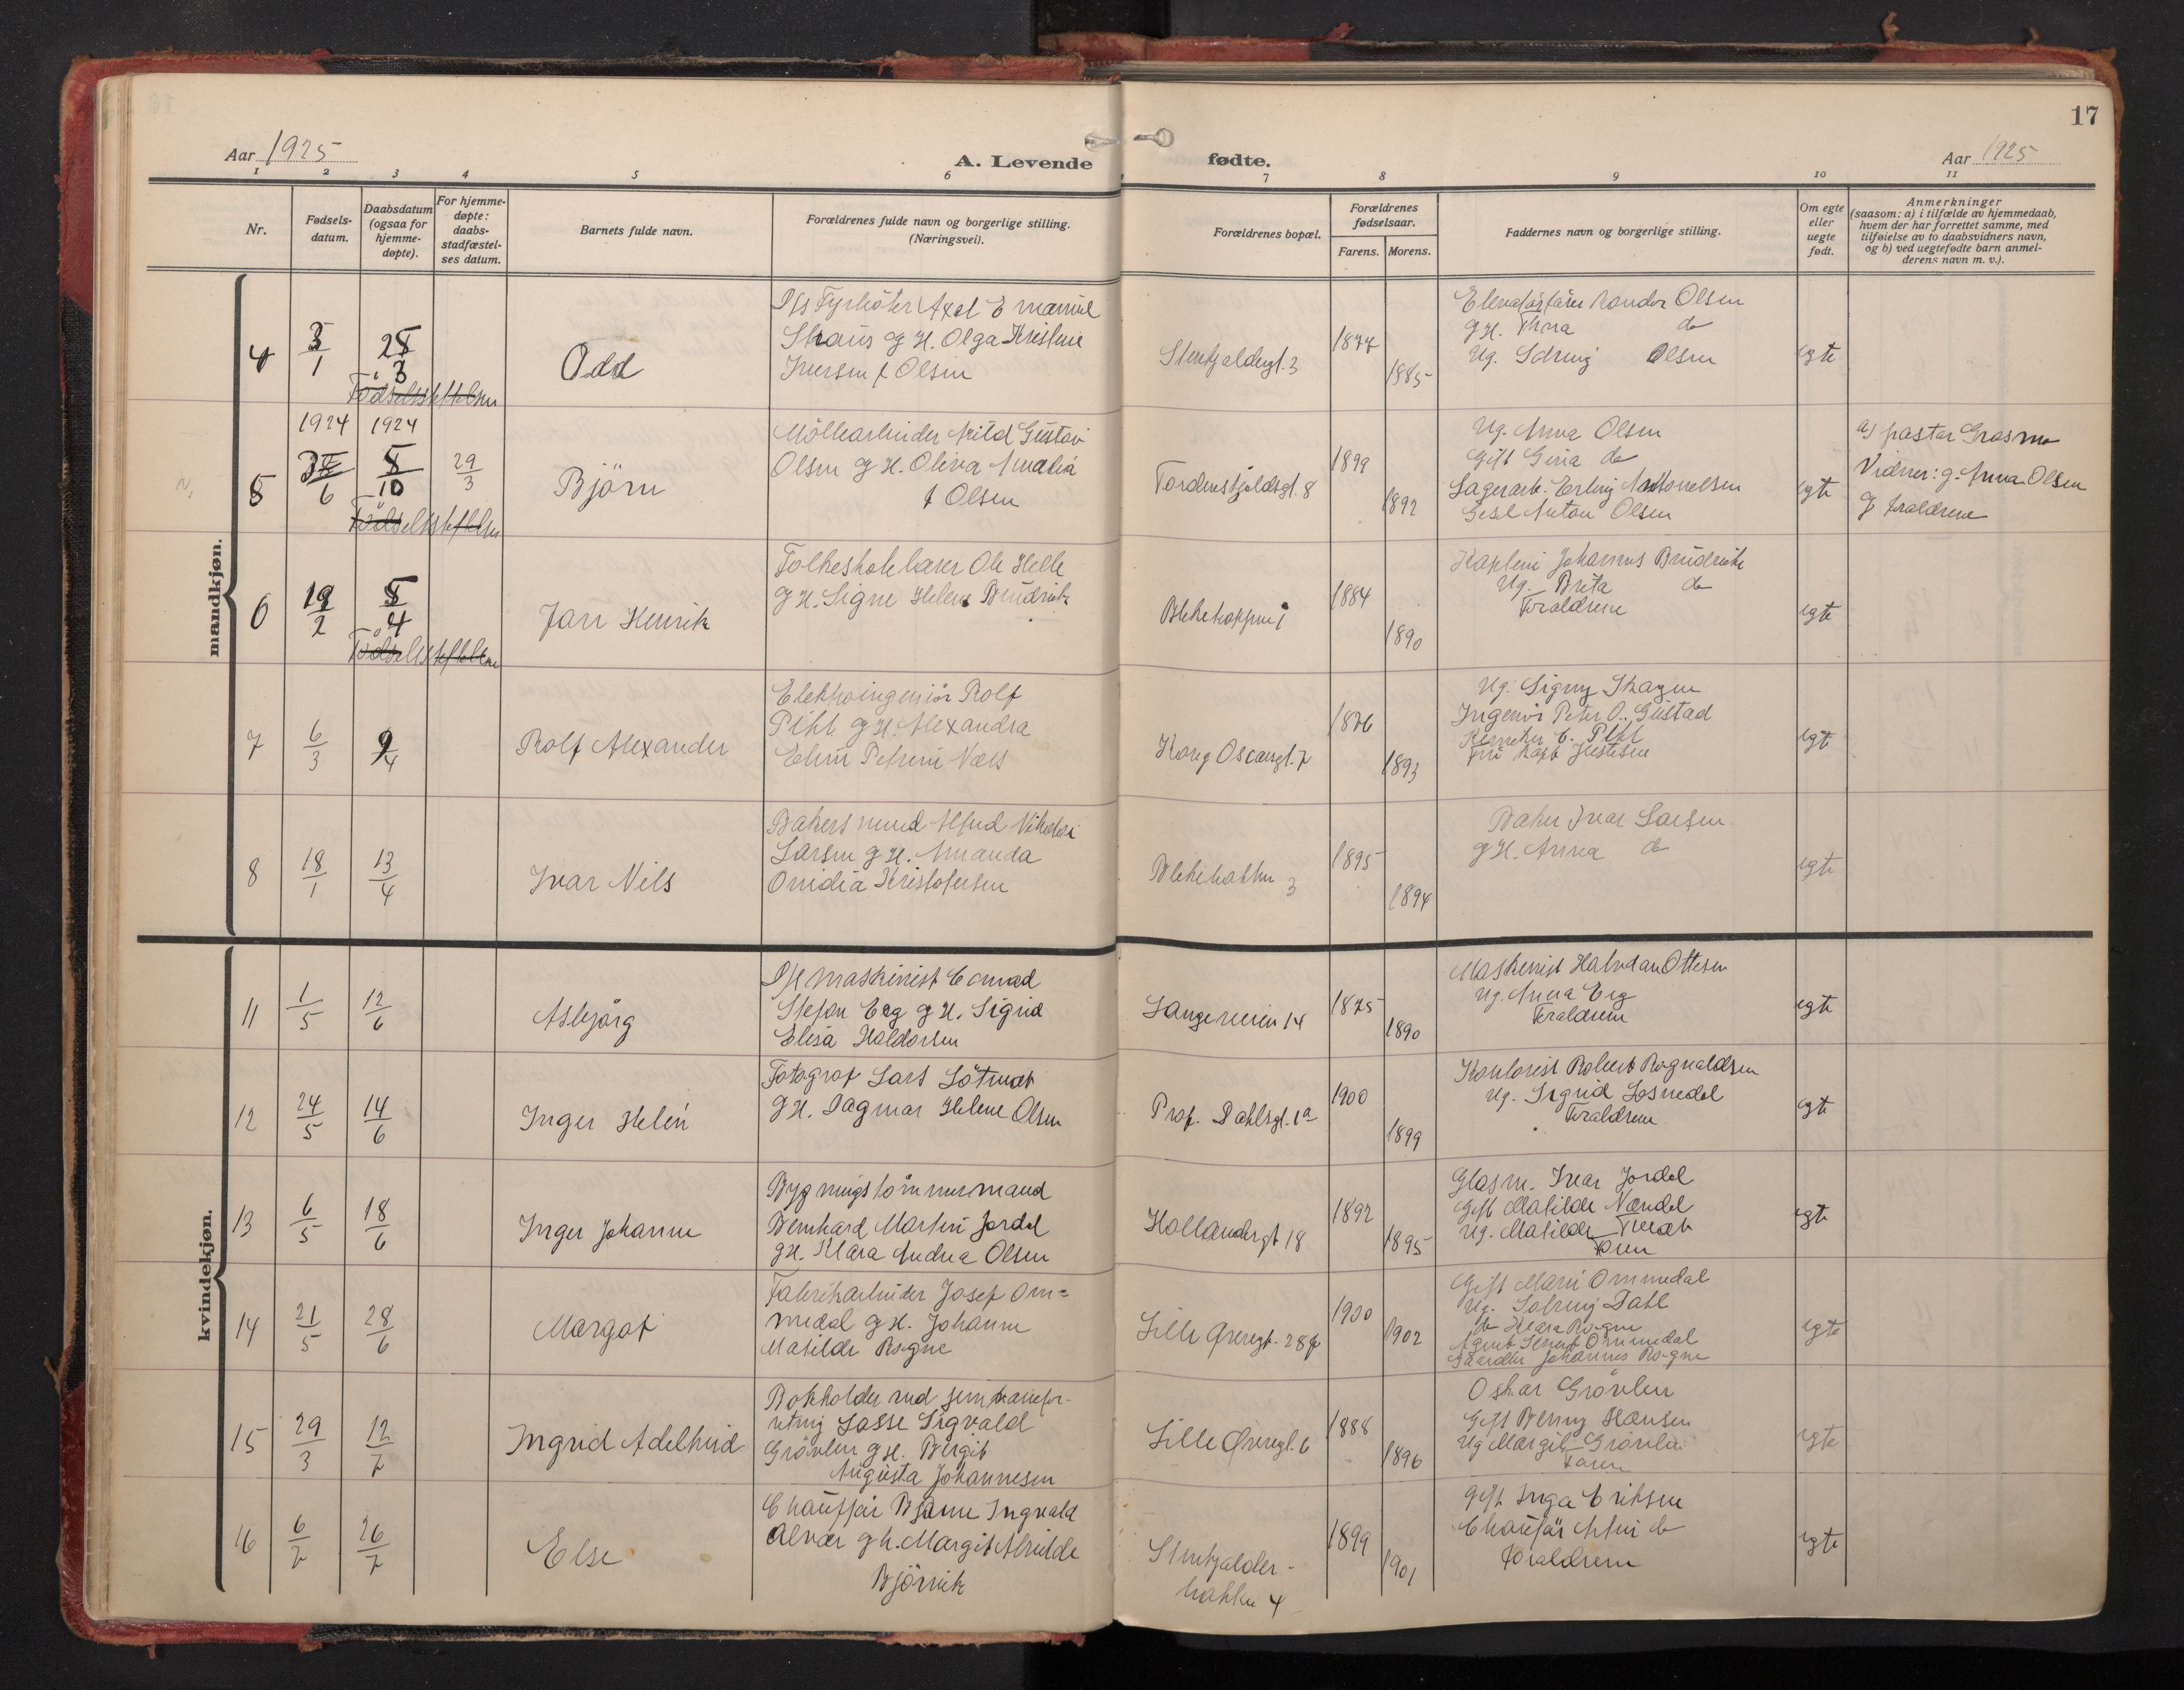 17
Aar 1925
A. Levende fødte.
Aar 1925
1 2 3 4 5 6 7 8 9 10 11
Nr.
Fødsels-
datum.
Daabsdatum
(ogsaa for
hjemme-
døpte).
For hjemme-
døpte:
daabs-
stadfæstel-
ses datum.
Barnets fulde navn.
Forældrenes fulde navn og borgerlige stilling.
(Næringsvei).
Forældrenes bopæl.
Forældrenes
fødselsaar.
Farens. Morens.
Faddernes navn og borgerlige stilling.
Om egte
eller
uegte
født.
Anmerkninger
(saasom: a) i tilfælde av hjemmedaab,
hvem der har forrettet samme, med
tilføielse av to daabsvidners navn,
og b) ved uegtefødte barn anmel-
derens navn m. v.).
mandkjøn.
4
3/1
28/3
Odd
Fyrbøter Axel Emanuel
og H. Olga Kristine
Iversen f Olsen
Stenkjaldergt. 3
1877
1885
Olsen
g H. Thora do
Ug. Solveig Olsen
egte
5
1924
6
1924
8/10
29/3
Björn
Möllearbeider Arild Gustav
Olsen g H. Oliva Amalia
f Olsen
Tordenskjoldsgt. 8
1899
1892
Ug. Anna Olsen
Gift Gina do
Lagerarb. Erling
Anton Olsen
egte
a) pastor Grasmo
Vidner: g. Anna Olsen
g foraldrene
6
19/2
8/4
Jan Henrik
Folkeskolelærer Ole Helle
g H. Signe Helene
Blekebakken 1
1884
1890
Kaptein Johannes
Ug. Brita do
Foraldrene
egte
7
6/3
9/4
Rolf Alexander
Elektroingeniör Rolf
Pihl g H. Alexandra
Elini Petrine Næss
Kong Oscarsgt. 7
1876
1893
Ug. Signy Skagen
Ingeniör Peter O. Gustad
Kemiker C. Pihl
Fru Kapt Justesen
egte
8
18/1
13/4
Ivar Nils
Bakersvend Alfred Nikolai
Larsen g H. Amanda
Ovidia Kristofersen
Blekebakken 3
1895
1894
Baker Ivar Larsen
g H. Anna do
egte
kvindekjøn.
11
1/5
12/6
Asbjörg
maskinist Conrad
Stefan Eeg g H. Sigrid
Elisa Haldorsen
Langeveien 14
1875
1890
Maskinist Halvdan Ottesen
Ug. Anna Eeg
Foraldrene
egte
12
24/5
14/6
Inger Helen
Fotograf Lars
g H. Dagmar Helene Olsen
Prof. Dahlsgt. 1a
1900
1899
Kontorist Robert Rognaldsen
Ug. Ingrid Losnedal
Foraldrene
egte
13
6/5
18/6
Inger Johanne
Bygningstömmermand
Bernhard Martin Jordal
g H. Klara Andrea Olsen
Hollendergt 18
1892
1895
Glasm. Ivar Jordal
Gift Matilde
Ug. Matilde
egte
14
21/5
28/6
Margot
Fabrikarbeider Josef Om=
medal g H. Johanne
Matilde Rogne
Lille Øvregt. 28
1900
1902
Gift Marie Ommedal
Ug. Solveig Dahl
do Klara Rogne
Agent Ommedal
Johannes Rogne
egte
15
29/3
12/7
Ingrid Adelheid
Bokholder ved jernvarefor-
retning Lasse Sigvald
Grövlen g H. Bergit
Augusta Johannesen
Lille Øvregt. 6
1888
1896
Oskar Grövlen
Gift Benny Hansen
Ug Margit Grövlen
Faren
egte
16
26/7
Else
Chauffør Bjarne Ingvald
Alvær g H. Margit Alvilde
Björvik
Stenkjelder-
bakken 4
1899
1901
Gift Inga Eriksen
Chauffør do
Foraldrene
egte